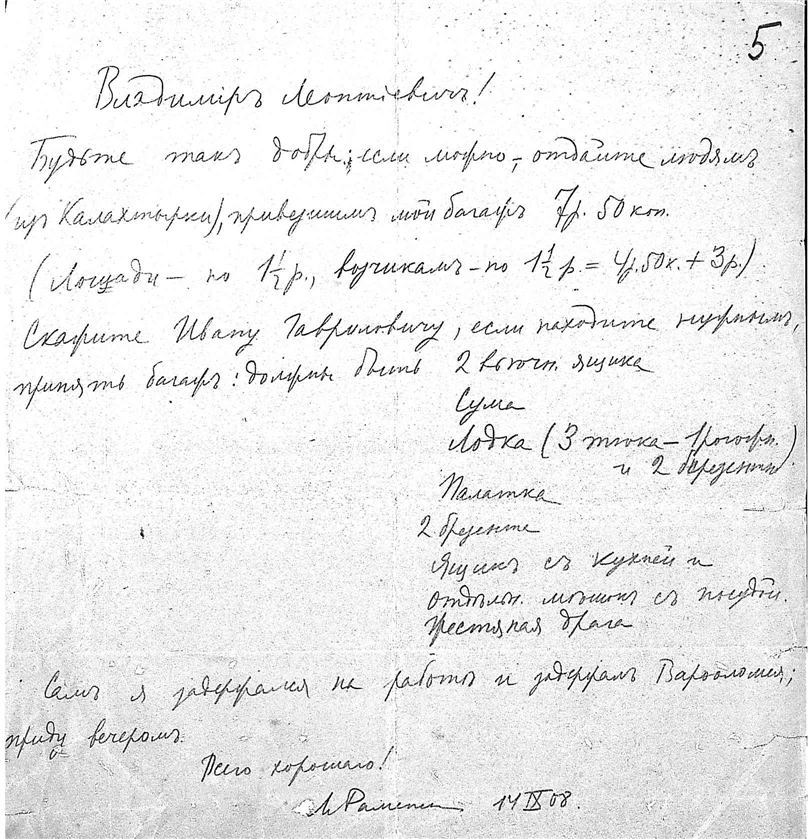 5
Владиміръ Леонтіевичъ!
Будьте такъ добры, если можно, – отдайте людямъ
(изъ Калахтырки), привезшимъ мой багажъ 7р. 50 коп.
(Лошади – по 1½ р., возчикамъ – по 1½ р. = 4р.50к. + 3р.)
Скажите Ивану Гавриловичу, если находите нужнымъ,
принять багажъ: должны быть 2 вьючн. ящика
Сума
Лодка (3 тюка – 1 рогожн.
и 2 брезентн.)
Палатка
2 брезента
Ящикъ съ кухней и
отдѣльн. мѣшокъ съ посудой.
Жестяная драга
Самъ я задержался на работѣ и задержалъ Варѳоломея;
приду вечеромъ.
Всего хорошаго!
14 IX 08.